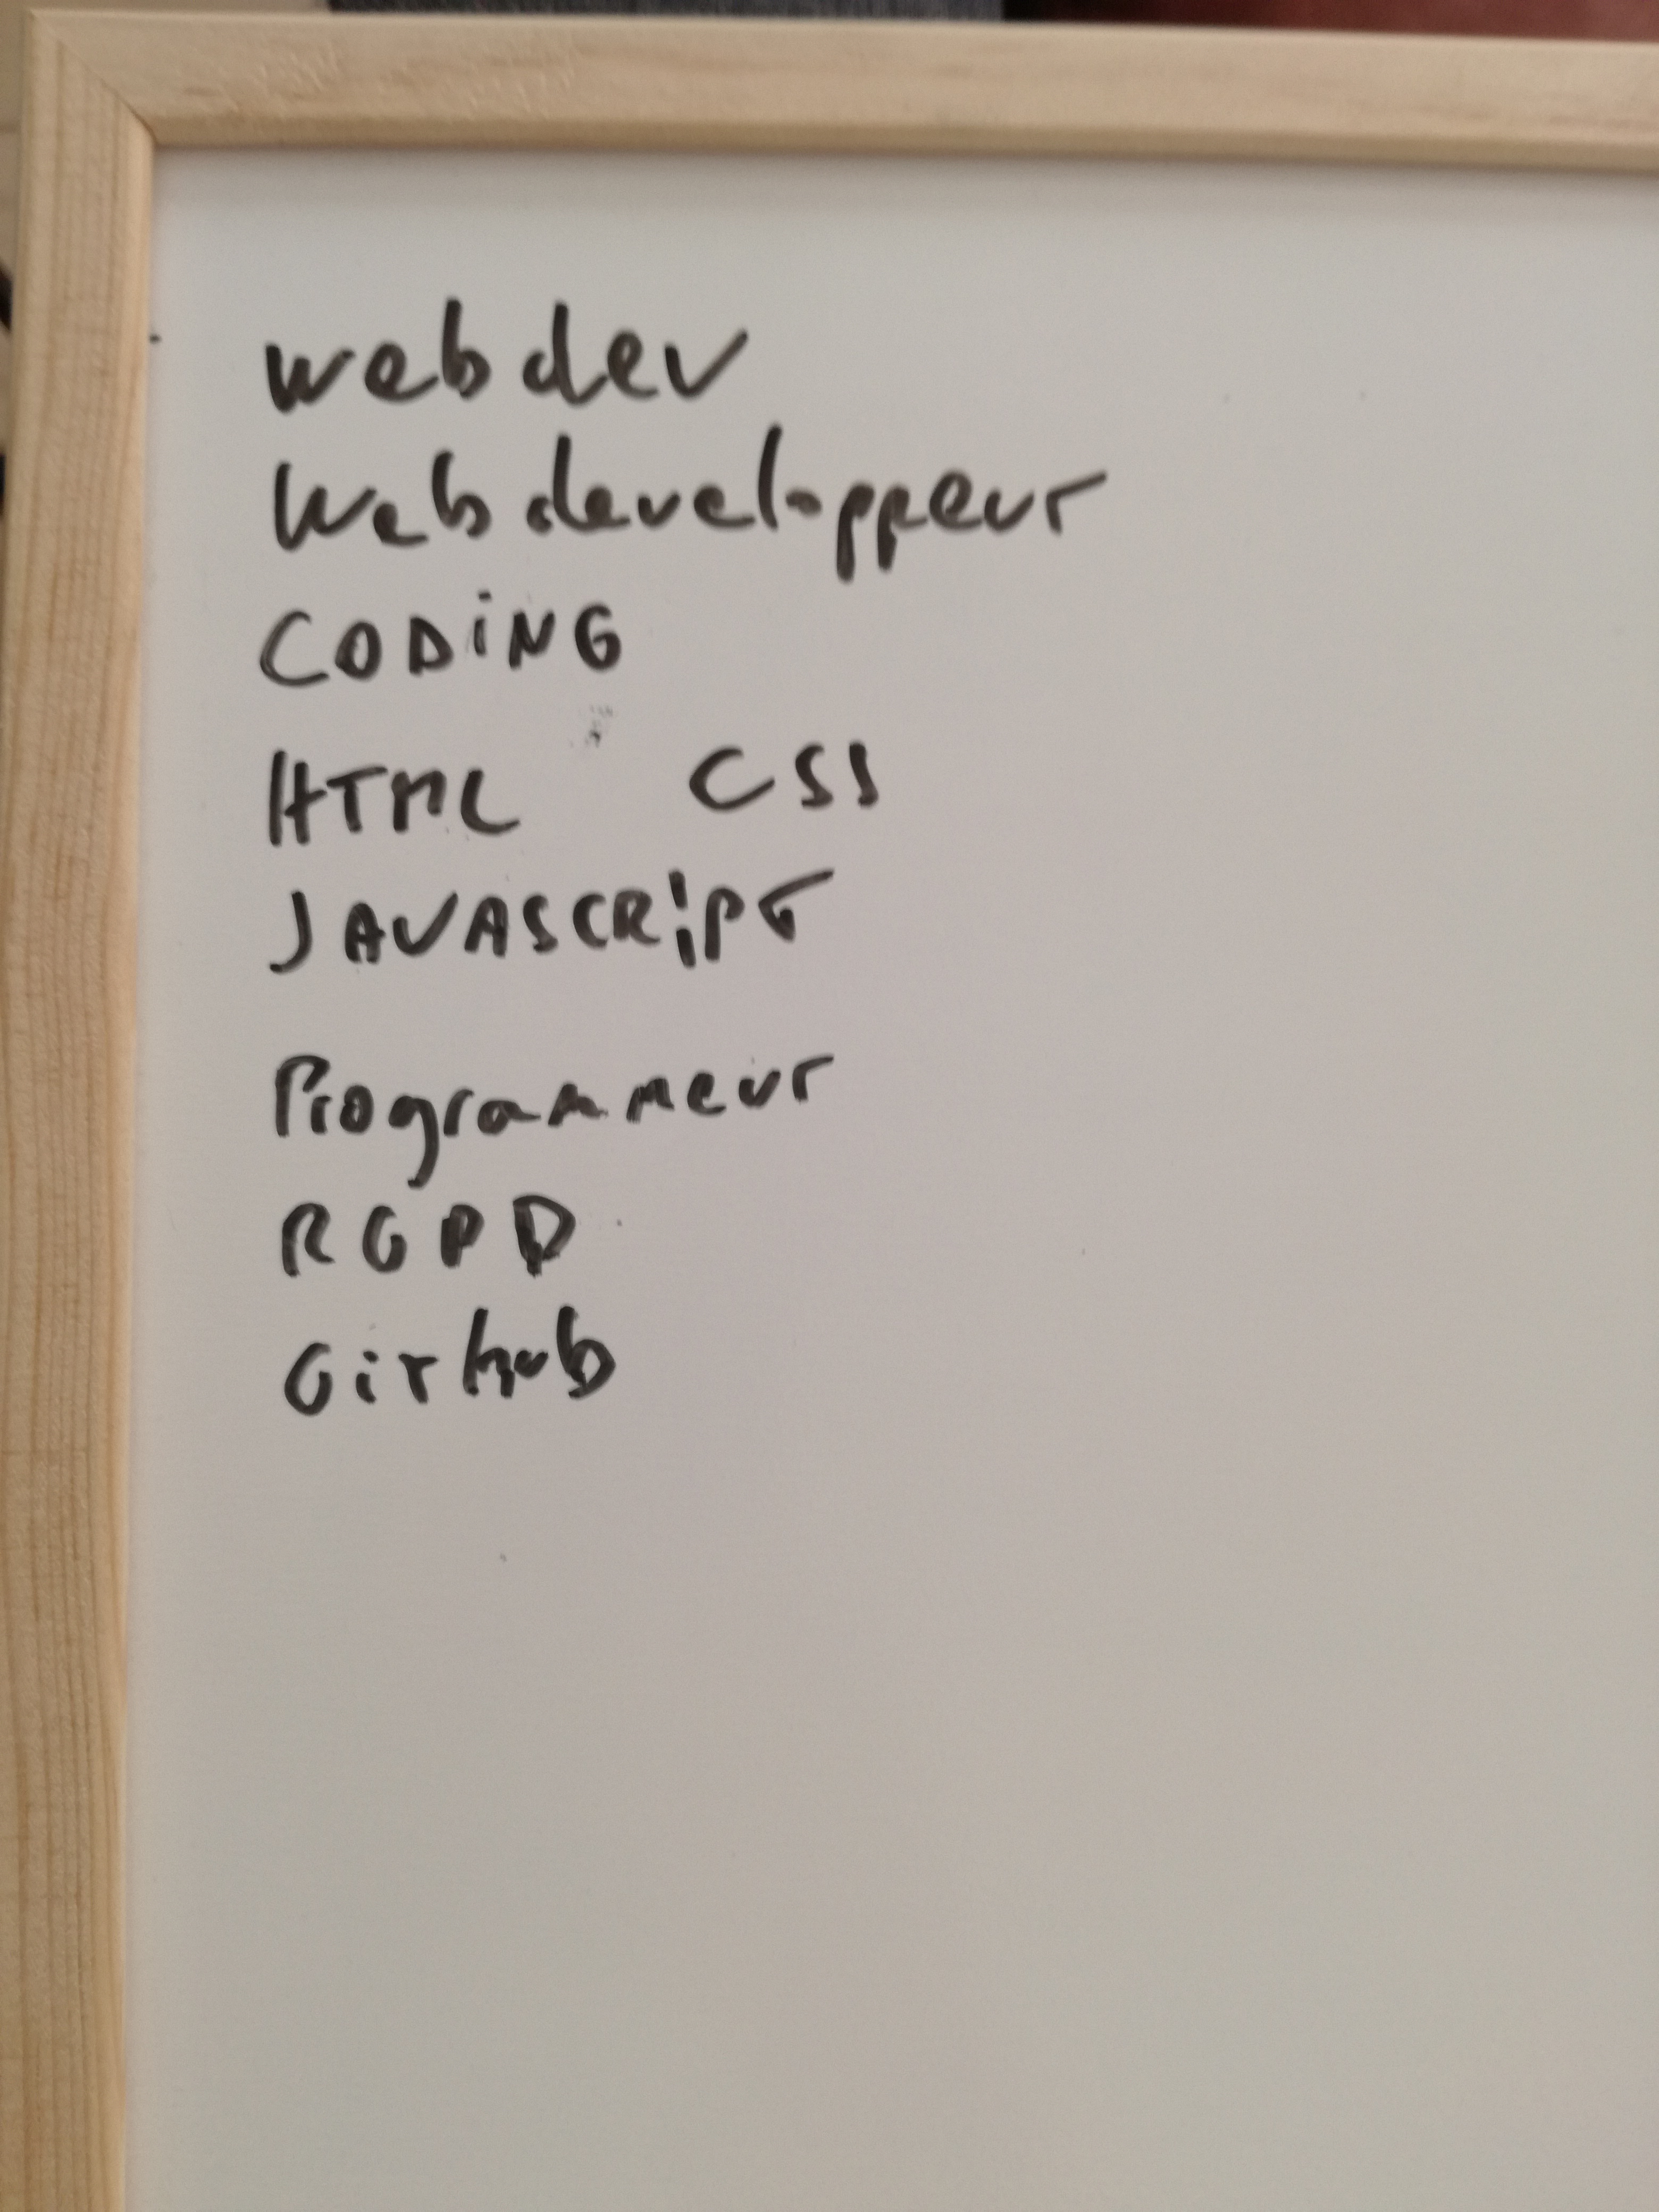 webdev
Webdeveloppeur
CODiNG
HTML CSS
JAVASCRiPT
Programmeur
RGPD
Github